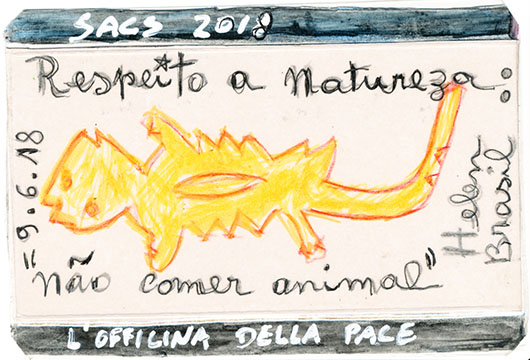 SACS 2018
Respeito a Natureza:
9.6.18
Helen
Brasil
"não comer animal"
L'OFFICINA DELLA PACE